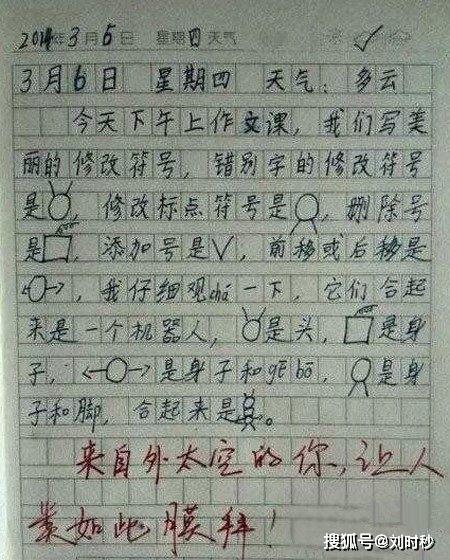 2014年3月6日 星期四天气
3月6日 星期四 天气：多云
今天下午上作文课，我们写美
丽的修改符号，错别字的修改符号
是，修改标点符号是，删除号
是，添加号是∨，前移或后移是
，我仔细观chá一下，它们合起
来是一个机器人，是头，是身
子，是身子和gēbō，是身
子和脚，合起来是。
来自外太空的你，让人
类如此膜拜！
搜狐号@刘时秒